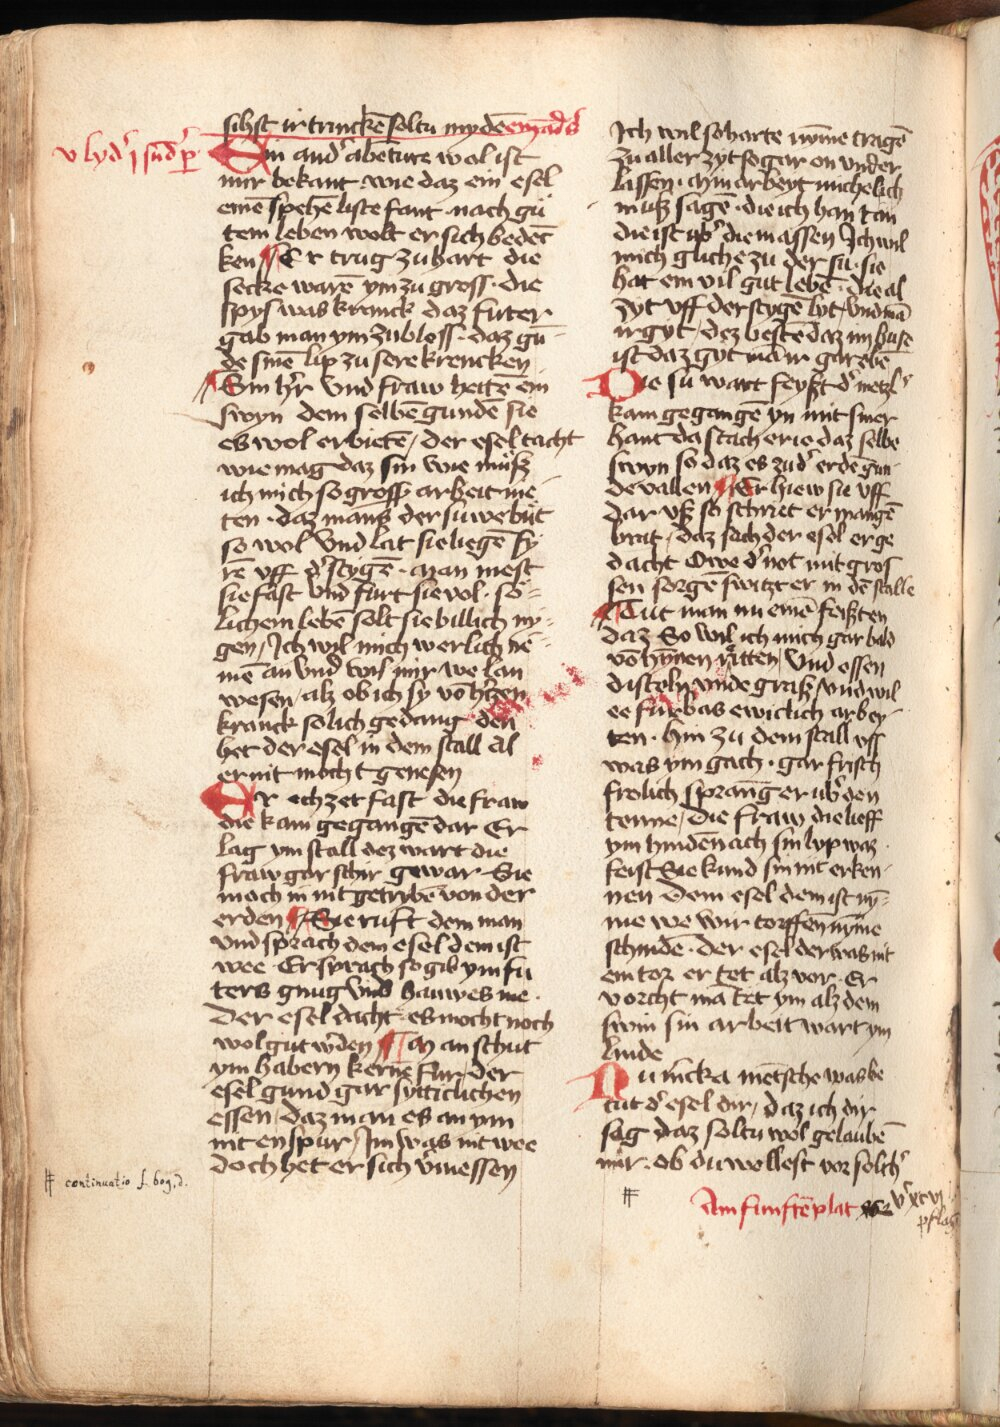 sihst ir trinckē soltu mydē ein and's
v lyd' j sūd' p
Ein and' abēture wol ist
mir bekant · wie daz ein esel
einē spehē liste fant · nach gu
tem leben wolt er sich bedec
ken Er trug zu hart die
secke warē ym zu gross · die
spys was kranck daz futer
gab man ym zu bloss · daz gū
de sinē lip zu sere krencken
Sin h'r vnd fraw hettē ein
swyn dem selbē gundē sie
es wol erbietē / der esel tacht
wie mag daz sin wie muͦsz
ich mich so gross arbeit nie
ten · daz mans der suwe but
so wol vnd lat sie liegē fy
rē vff d' stygē · man mest
sie fast vnd furt sie vol · so=
lichem lebē solt sie billich ny=
gen / Ich wil mich werlich nē=
mē an vnd wil mir we lan
wesen / alz ob ich sy vō h'tzen
kranck solich gedang den
het der esel in dem stall al
er nit mocht genesen
Er echzet fast die fraw
die kam gegangē dar Er
lag ym stall dez wart die
fraw gar schir gewar · Sie
moch in nit getrybē von der
erden Sie ruft dem man
vnd sprach dem esel dem ist
wee · Er sprach so gib ym fu
ters gnug vnd hauwes me ·
Der esel dacht es mocht noch
wol gut w'den Man schut
ym habern kerne fur · der
esel gund gar sytticlichen
essen / daz man es an ym
nit enspur / Im was nit wee
doch het er sich v'messen
# continuatio f. bog. d.
Ich wil so harte nyme tragē
zu aller zyt so gar on vnder
lassen · myn arbeyt mich elich
muß sagē · die ich han tan
die ist vb' die massen Ich wil
mich gliche zu der su · sie
hat ein vil gut lebē · die al
zyt vff der stygē lyt / vnd mā
ir gyt / dez bestē daz im huse
ist daz gyt mā ir gar ebē
Die su wart feyßt d' metzl'
kam gegangē yn mit siner
hant da stach er ie daz selbe
swyn so daz es zu d' erdē gun
de vallen Er hiew sie vff
dar vß so schriet er mangē
brat / daz sach der esel er ge
dacht Owe d' not mit gros
sen sorgē switzt er in dē stalle
Tut man nu einē feißten
daz So wil ich mich gar bald
vō hynnen ritten / vnd essen
disteln vnde graß / vnd wil
ee furbas ewiclich arbey
ten · hin zu dem stall vff
was ym gach · gar frisch
frolich sprang er ub' den
tenne / Die fraw die lieff
ym hindē nach sin lyp waz
feist Sie kund sin nit erken
nen Dem esel dem ist ny=
me we wir torffen nyme
schinde · der esel der was nit
ein tor er tet alz vor · Er
vorcht mā tet ym alz dem
swin sin arbeit wart ym
linde
Du nicka mētsche was be
tut d' esel dir / daz ich dir
sag daz soltu wol gelaubē
mir · ob du wollest vor solch'
#
Am funftē plat v' xcvj